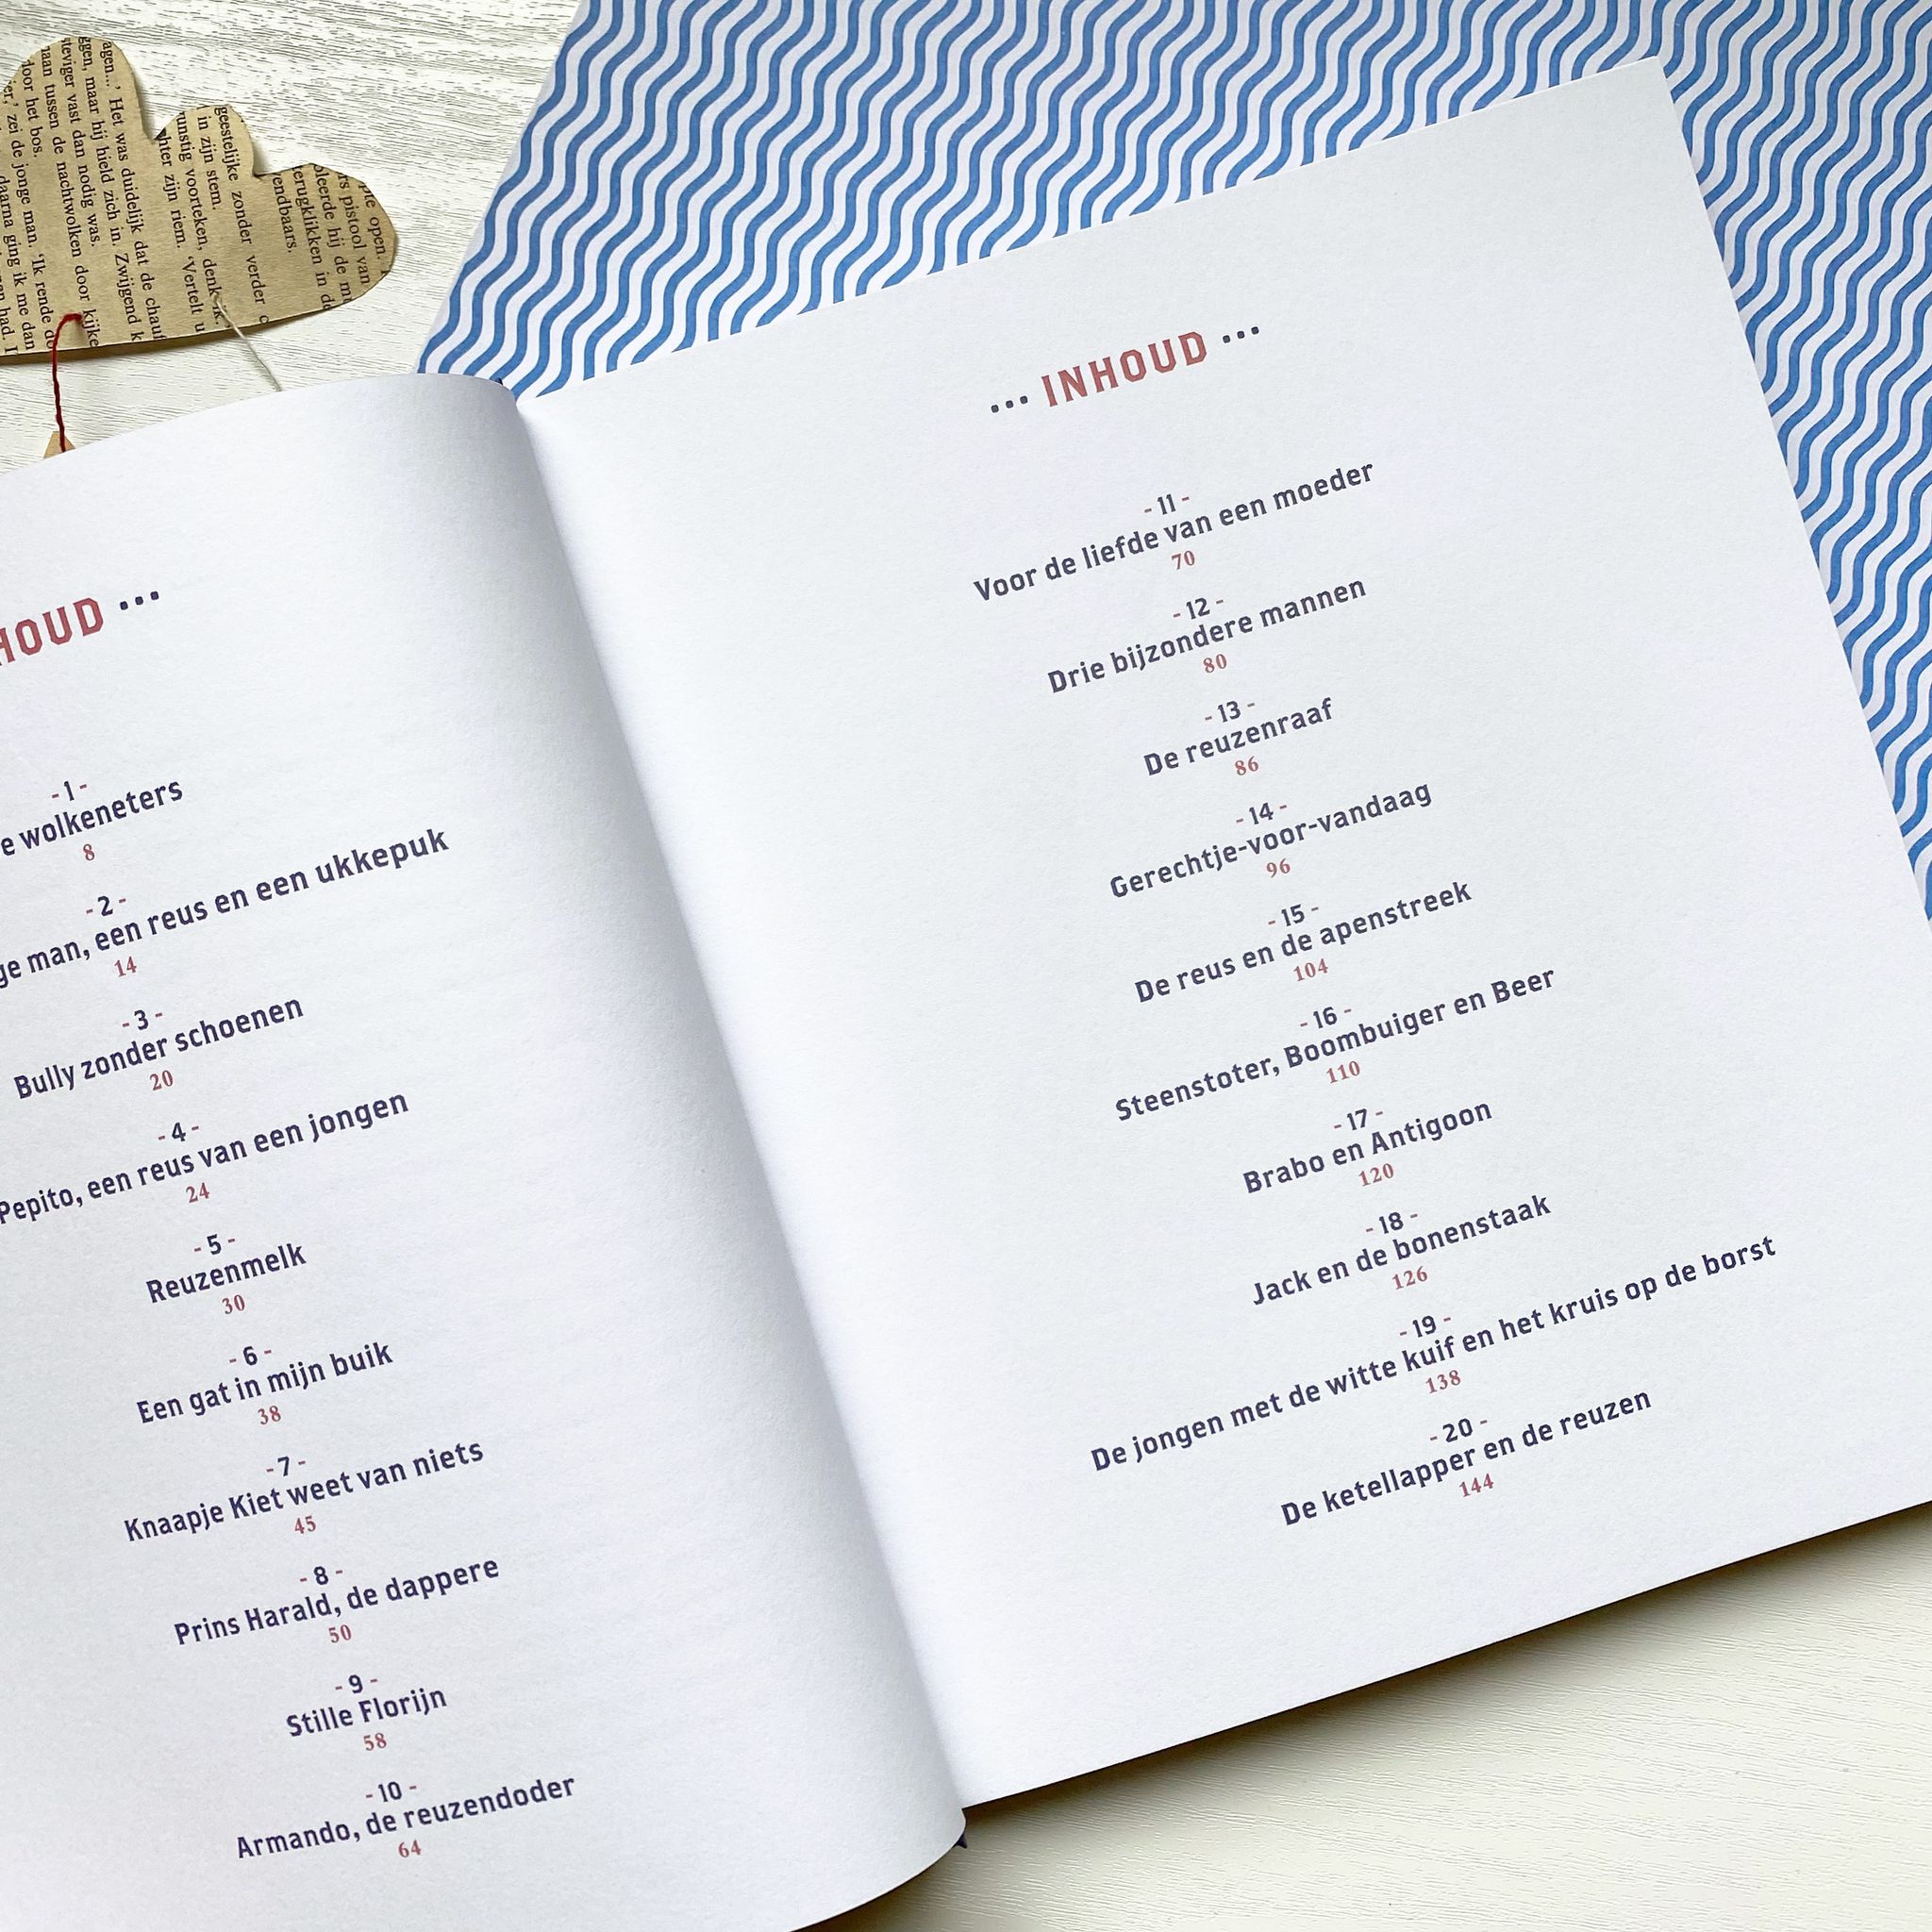 agen...’ Het was duidelijk dat de chauf
ggen, maar hij hield zich in. Zwijgend k
steviger vast dan nodig was.
naan tussen de nachtwolken door kijke
door het bos.
er,’ zei de jonge man. ‘Ik rende do
daarna ging ik me dan
had. I
pte open.
rs pistool van
oleerde hij de mu
erugklikken in de
endbaars.
geestelijke zonder verder
in zijn stem.
unstig voorteken, denk ik.
hter zijn riem. ‘Vertelt u
HOUD ...
- 1 -
e wolkeneters
8
- 2 -
ge man, een reus en een ukkepuk
14
- 3 -
Bully zonder schoenen
20
- 4 -
Pepito, een reus van een jongen
24
- 5 -
Reuzenmelk
30
- 6 -
Een gat in mijn buik
38
- 7 -
Knaapje Kiet weet van niets
45
- 8 -
Prins Harald, de dappere
50
- 9 -
Stille Florijn
58
- 10 -
Armando, de reuzendoder
64
... INHOUD ...
- 11 -
Voor de liefde van een moeder
70
- 12 -
Drie bijzondere mannen
80
- 13 -
De reuzenraaf
86
- 14 -
Gerechtje-voor-vandaag
96
- 15 -
De reus en de apenstreek
104
- 16 -
Steenstoter, Boombuiger en Beer
110
- 17 -
Brabo en Antigoon
120
- 18 -
Jack en de bonenstaak
126
- 19 -
De jongen met de witte kuif en het kruis op de borst
138
- 20 -
De ketellapper en de reuzen
144